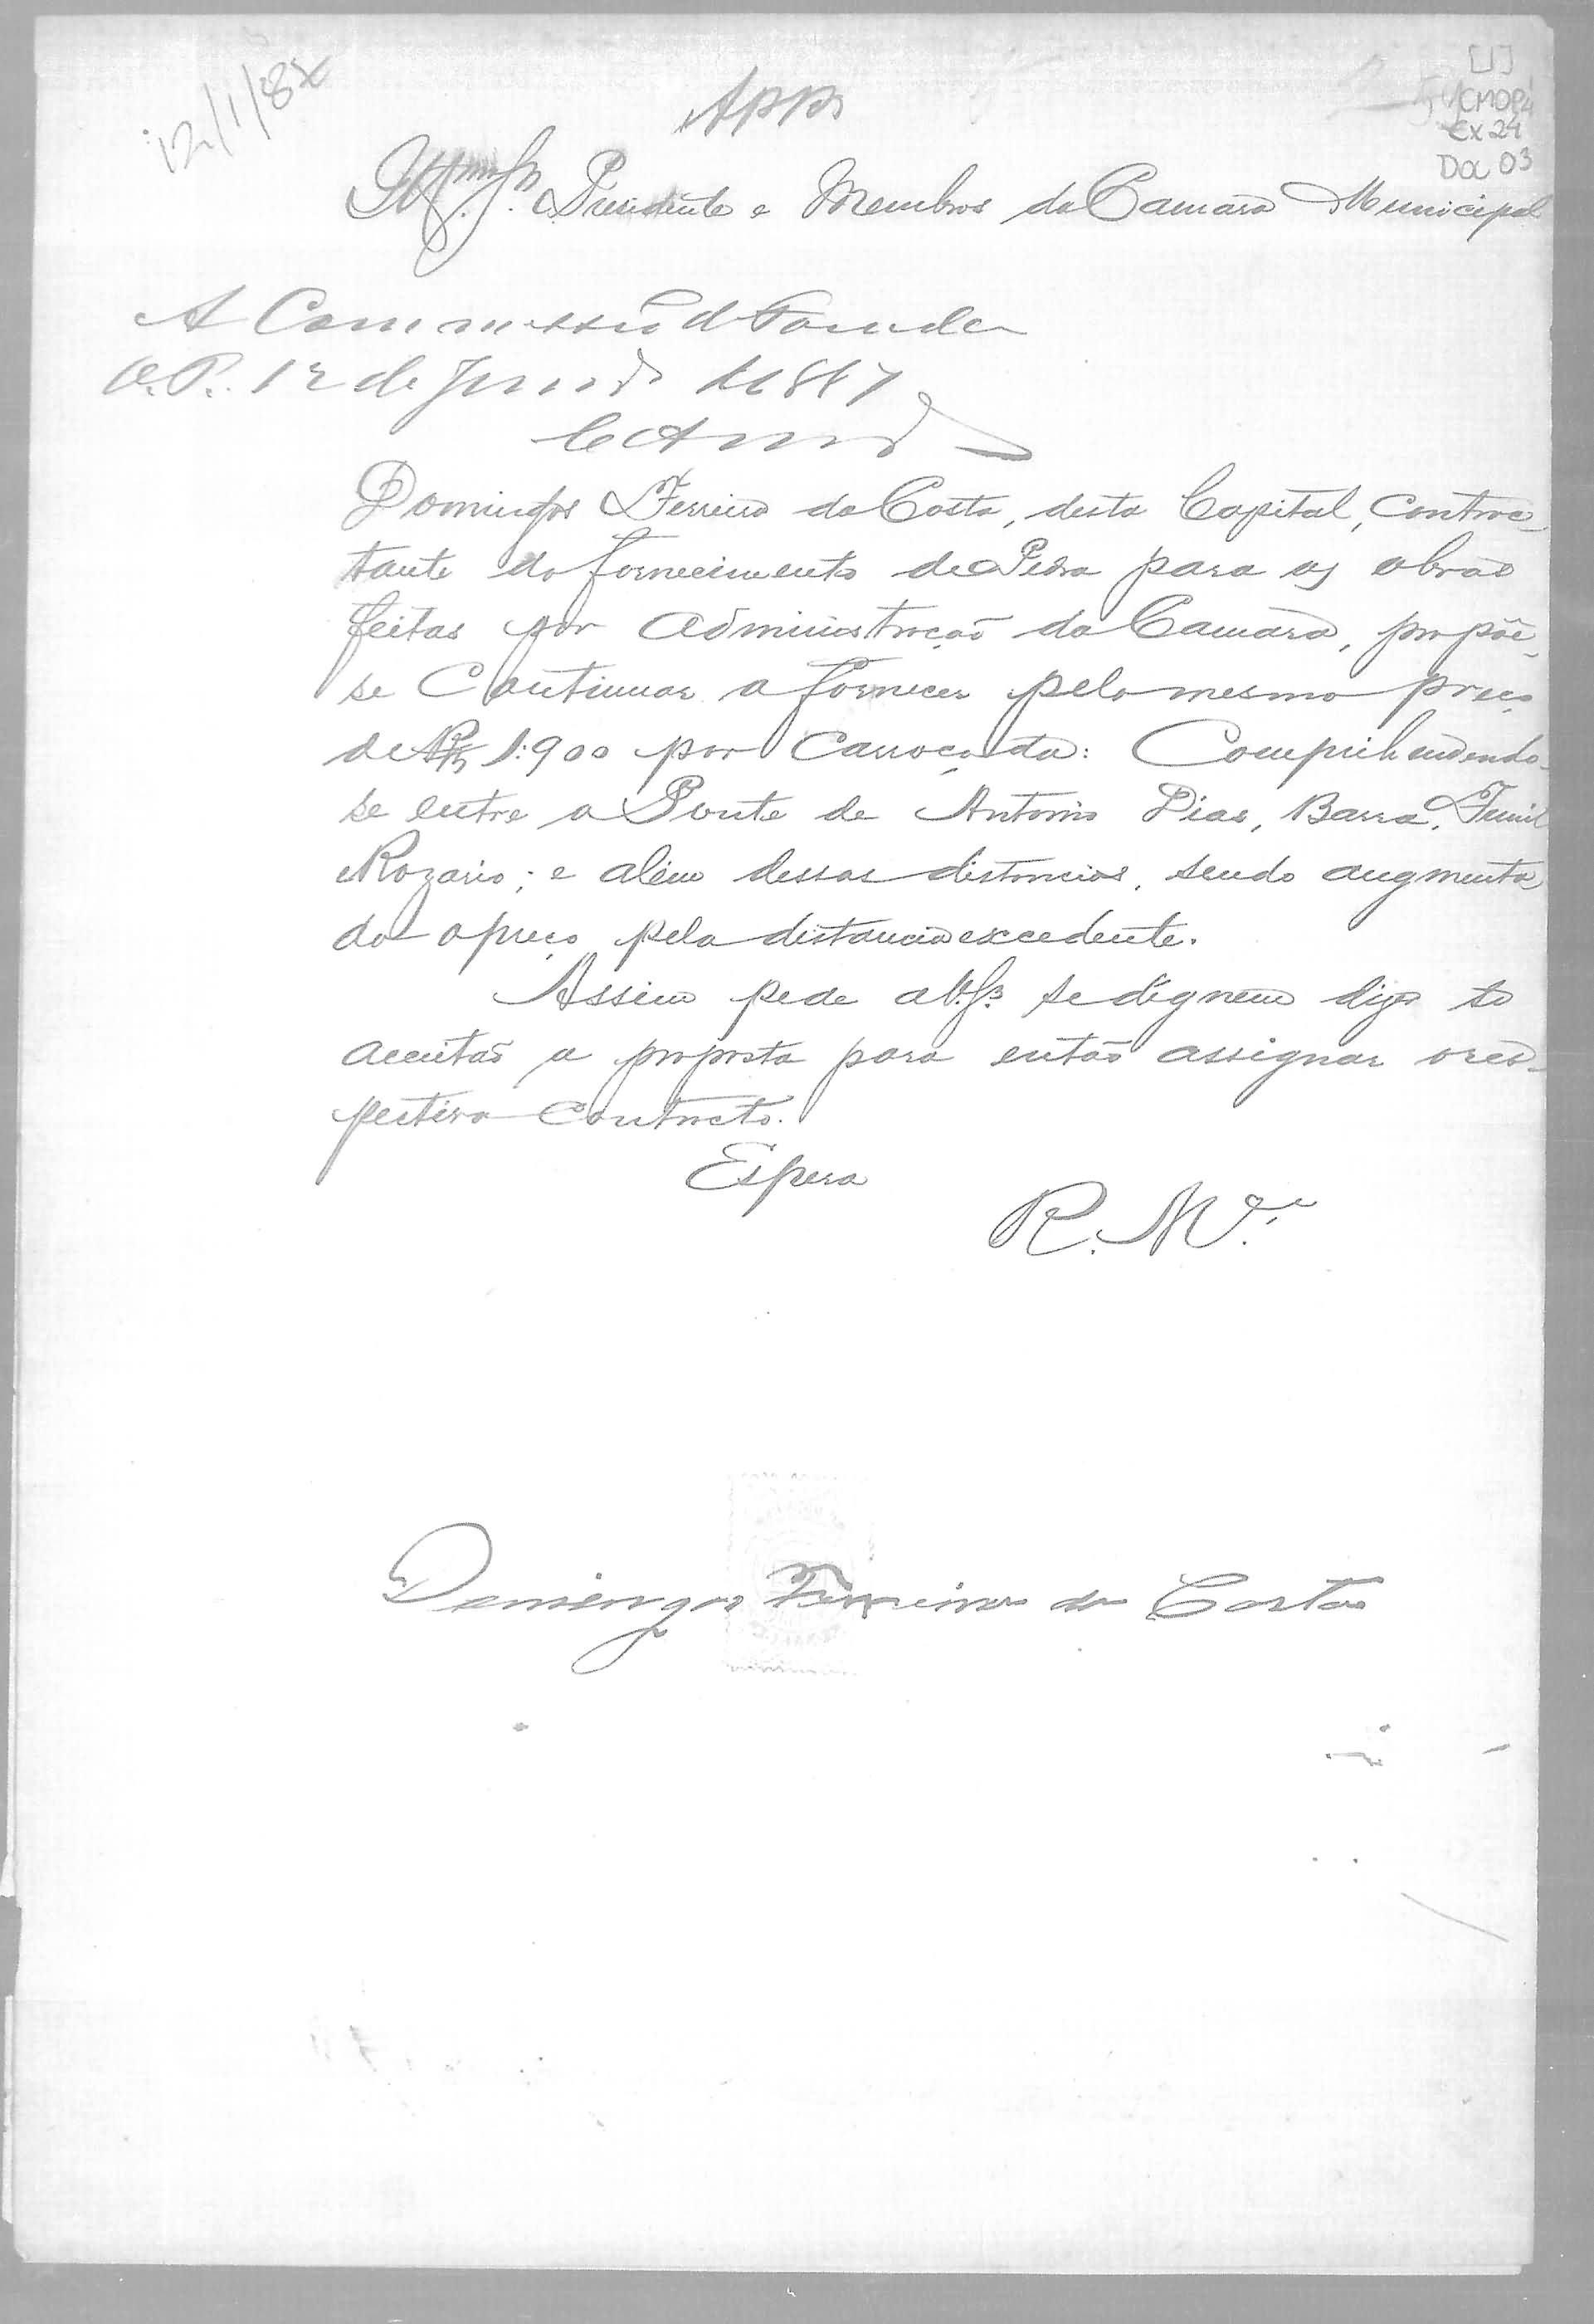 12/1/87
App
[1]
CMOP
Cx 24
Doc 03
Illmos Srs. Presidente e Membros da Camara Municipal
A Commissão d Fazenda
O. P. 12 de Janro de 1887
Domingos Ferreira da Costa, desta Capital, contrac-
tante do fornecimento de Pedra para as obras
feitas por administração da Camara, propõe-
se Continuar a fornecer pelo mesmo preço
de Rs 1:900 por Carroçada: Comprihendendo-
se entre a Ponte de Antonio Dias, Barra, Funil
Rozario; e além dessas distancias, sendo augmenta
do o preço pela distancia excedente.
Assim pede a V. Sas. se dignem digo se
aceitar a proposta para então assignar o res-
pectivo Contracto.
Espera
R. Mce
Domingos Ferreira da Costa